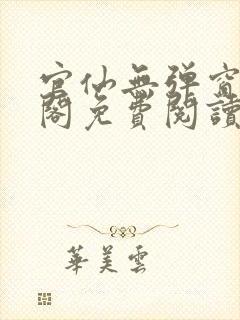 官仙無弹窗
閣免費閱讀
華美雲